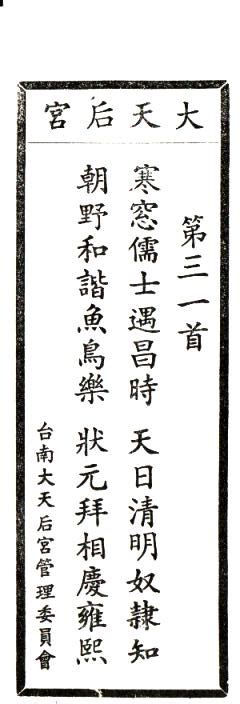 大天后宮
第三一首
寒窓儒士遇昌時 天日清明奴隸知
朝野和諧魚鳥樂 狀元拜相慶雍熙
台南大天后宮管理委員會